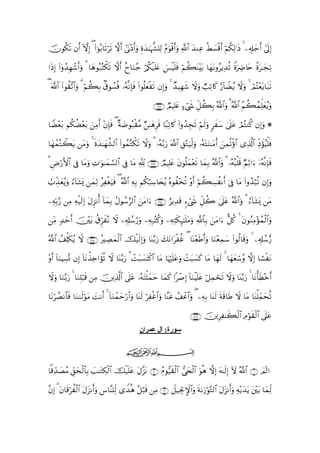 صَغِيرًا أَوْ كَبِيرًا إِلَىٰٓ أَجَلِهِۦ ۚ ذَٰلِكُمْ أَقْسَطُ عِندَ ٱللَّهِ وَأَقْوَمُ لِلشَّهَٰدَةِ وَأَدْنَىٰٓ أَلَّا تَرْتَابُوٓا۟ ۖ إِلَّآ أَن تَكُونَ
تِجَٰرَةً حَاضِرَةً تُدِيرُونَهَا بَيْنَكُمْ فَلَيْسَ عَلَيْكُمْ جُنَاحٌ أَلَّا تَكْتُبُوهَا ۗ وَأَشْهِدُوٓا۟ إِذَا
تَبَايَعْتُمْ ۚ وَلَا يُضَآرَّ كَاتِبٌ وَلَا شَهِيدٌ ۚ وَإِن تَفْعَلُوا۟ فَإِنَّهُۥ فُسُوقٌۢ بِكُمْ ۗ وَٱتَّقُوا۟ ٱللَّهَ ۖ
وَيُعَلِّمُكُمُ ٱللَّهُ ۗ وَٱللَّهُ بِكُلِّ شَىْءٍ عَلِيمٌ
۞ وَإِن كُنتُمْ عَلَىٰ سَفَرٍ وَلَمْ تَجِدُوا۟ كَاتِبًا فَرِهَٰنٌ مَّقْبُوضَةٌ ۖ فَإِنْ أَمِنَ بَعْضُكُم بَعْضًا
فَلْيُؤَدِّ ٱلَّذِى ٱؤْتُمِنَ أَمَٰنَتَهُۥ وَلْيَتَّقِ ٱللَّهَ رَبَّهُۥ ۗ وَلَا تَكْتُمُوا۟ ٱلشَّهَٰدَةَ ۚ وَمَن يَكْتُمْهَا
فَإِنَّهُۥٓ ءَاثِمٌ قَلْبُهُۥ ۗ وَٱللَّهُ بِمَا تَعْمَلُونَ عَلِيمٌ لِّلَّهِ مَا فِى ٱلسَّمَٰوَٰتِ وَمَا فِى ٱلْأَرْضِ ۗ
وَإِن تُبْدُوا۟ مَا فِىٓ أَنفُسِكُمْ أَوْ تُخْفُوهُ يُحَاسِبْكُم بِهِ ٱللَّهُ ۖ فَيَغْفِرُ لِمَن يَشَآءُ وَيُعَذِّبُ
مَن يَشَآءُ ۗ وَٱللَّهُ عَلَىٰ كُلِّ شَىْءٍ قَدِيرٌ ءَامَنَ ٱلرَّسُولُ بِمَآ أُنزِلَ إِلَيْهِ مِن رَّبِّهِۦ
وَٱلْمُؤْمِنُونَ ۚ كُلٌّ ءَامَنَ بِٱللَّهِ وَمَلَٰٓئِكَتِهِۦ وَكُتُبِهِۦ وَرُسُلِهِۦ لَا نُفَرِّقُ بَيْنَ أَحَدٍ مِّن
رُّسُلِهِۦ ۚ وَقَالُوا۟ سَمِعْنَا وَأَطَعْنَا ۖ غُفْرَانَكَ رَبَّنَا وَإِلَيْكَ ٱلْمَصِيرُ لَا يُكَلِّفُ ٱللَّهُ
نَفْسًا إِلَّا وُسْعَهَا ۚ لَهَا مَا كَسَبَتْ وَعَلَيْهَا مَا ٱكْتَسَبَتْ ۗ رَبَّنَا لَا تُؤَاخِذْنَآ إِن نَّسِينَآ أَوْ
أَخْطَأْنَا ۚ رَبَّنَا وَلَا تَحْمِلْ عَلَيْنَآ إِصْرًا كَمَا حَمَلْتَهُۥ عَلَى ٱلَّذِينَ مِن قَبْلِنَا ۚ رَبَّنَا وَلَا
تُحَمِّلْنَا مَا لَا طَاقَةَ لَنَا بِهِۦ ۖ وَٱعْفُ عَنَّا وَٱغْفِرْ لَنَا وَٱرْحَمْنَآ ۚ أَنتَ مَوْلَىٰنَا فَٱنصُرْنَا
عَلَى ٱلْقَوْمِ ٱلْكَٰفِرِينَ
سورة: آل عمران
بِسْمِ ٱللَّهِ ٱلرَّحْمَٰنِ ٱلرَّحِيمِ
الٓمٓ ٱللَّهُ لَآ إِلَٰهَ إِلَّا هُوَ ٱلْحَىُّ ٱلْقَيُّومُ نَزَّلَ عَلَيْكَ ٱلْكِتَٰبَ بِٱلْحَقِّ مُصَدِّقًا
لِّمَا بَيْنَ يَدَيْهِ وَأَنزَلَ ٱلتَّوْرَىٰةَ وَٱلْإِنجِيلَ مِن قَبْلُ هُدًى لِّلنَّاسِ وَأَنزَلَ ٱلْفُرْقَانَ ۗ إِنَّ